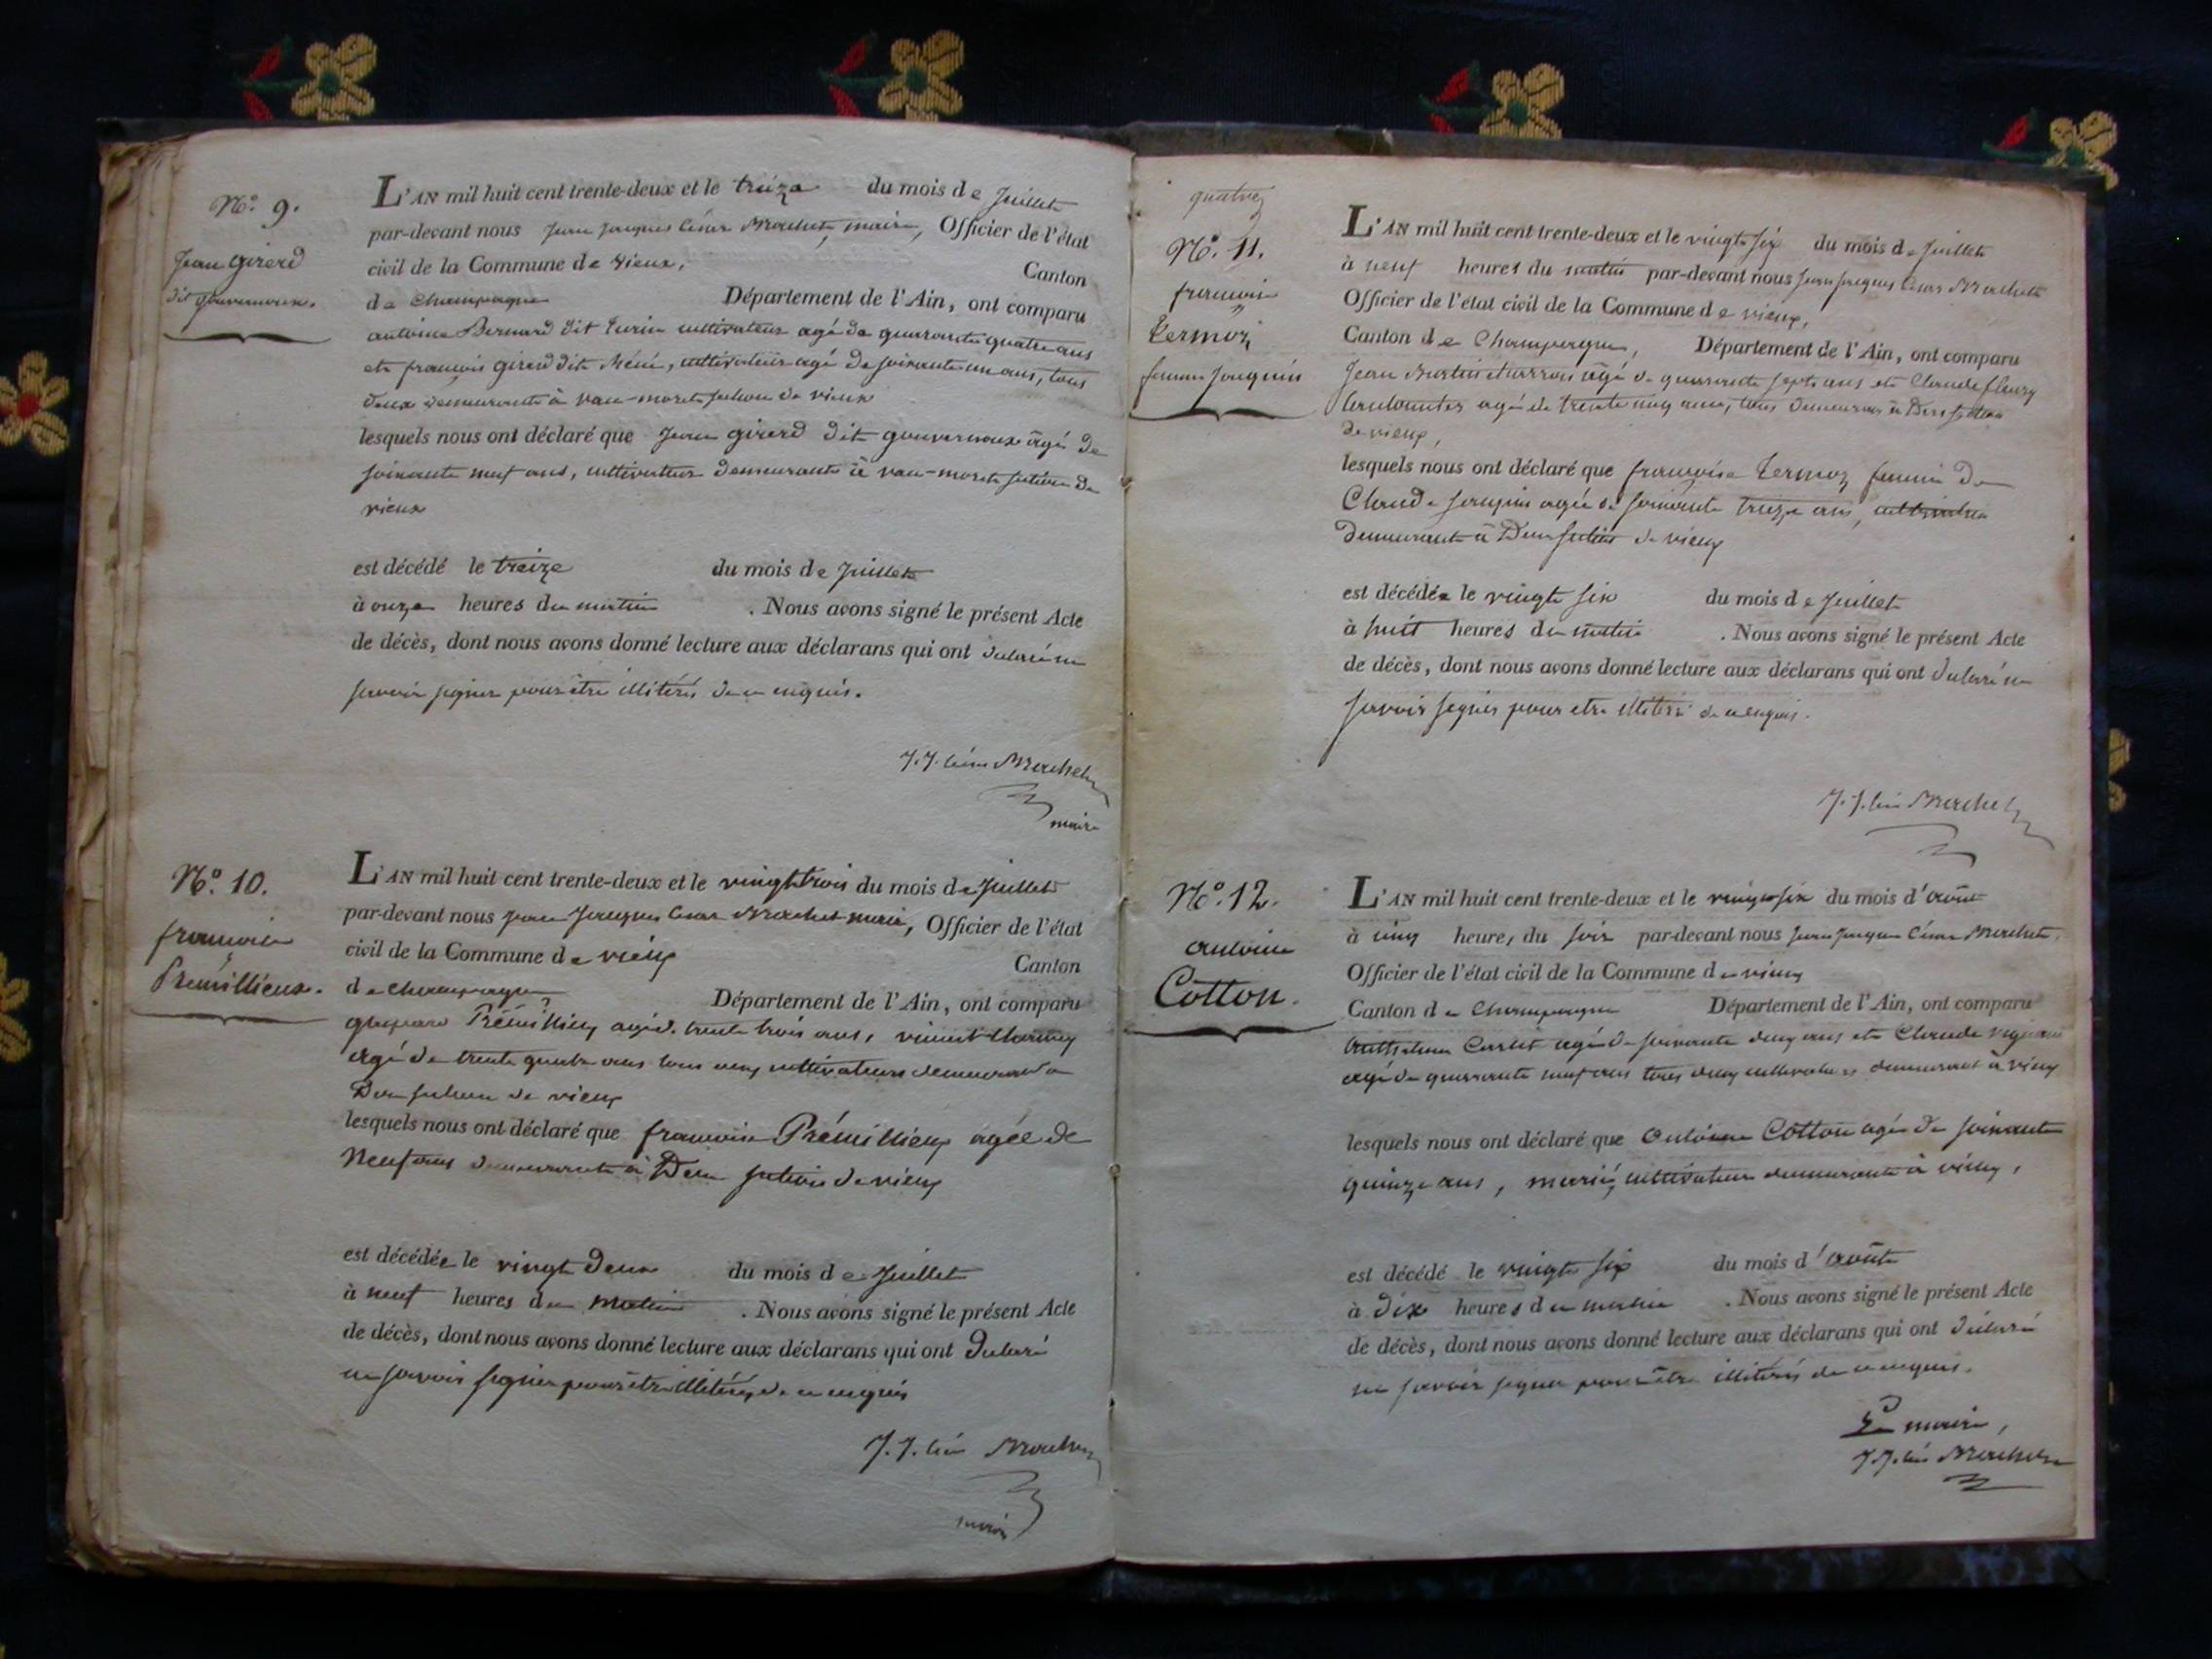 N.º 9.
Jean girerd
dit gouvernoux.
L'AN mil huit cent trente-deux et le treize du mois de Juillet
par-devant nous Jean Jacques César Brachet, maire, Officier de l'état
civil de la Commune de vieux, Canton
de Champagne Département de l'Ain, ont comparu
antoine Bernard dit turin cultivateur agé de quarante quatre ans
et françois girerd dit Méni, cultivateur agé de soixante un ans, tous
deux demeurants à vau-moret section de vieux
lesquels nous ont déclaré que Jean girerd dit gouvernoux âgé de
soixante neuf ans, cultivateur demeurant à vau-moret section de
vieux
est décédé le treize du mois de Juillet
à onze heures du matin . Nous avons signé le présent Acte
de décès, dont nous avons donné lecture aux déclarans qui ont déclaré ne
savoir signer pour être illitérés de ce enquis.
J. J. César Brachet
maire
N.º 10.
françoise
Prémillieux.
L'AN mil huit cent trente-deux et le vingt trois du mois de Juillet
par-devant nous Jean Jacques César Brachet maire, Officier de l'état
civil de la Commune de vieux Canton
de Champagne Département de l'Ain, ont comparu
gaspard Prémillieux agé de trente trois ans, vincent
agé de trente quatre ans tous deux cultivateurs demeurant à
section de vieux
lesquels nous ont déclaré que françoise Prémillieux agée de
Neuf ans demeurante à section de vieux
est décédée le vingt deux du mois de Juillet
à neuf heures du Matin . Nous avons signé le présent Acte
de décès, dont nous avons donné lecture aux déclarans qui ont déclaré
ne savoir signer pour être illitérés de ce enquis
J. J. César Brachet
maire
quatre
N.º 11.
françoise
termoz
femme Jouguin
L'AN mil huit cent trente-deux et le vingt six du mois de Juillet
à neuf heures du matin par-devant nous Jean Jacques César Brachet
Officier de l'état civil de la Commune de vieux,
Canton de Champagne, Département de l'Ain, ont comparu
Jean agé de quarante sept ans et Claude fleury
agé de trente cinq ans, tous demeurans à section
de vieux,
lesquels nous ont déclaré que françoise termoz femme de
Claude Jouguin agée de soixante treize ans,
demeurante à section de vieux
est décédée le vingt six du mois de Juillet
à huit heures du matin . Nous avons signé le présent Acte
de décès, dont nous avons donné lecture aux déclarans qui ont déclaré ne
savoir signer pour etre illitéré de ce enquis.
J. J. César Brachet
N.º 12.
antoine
Cotton.
L'AN mil huit cent trente-deux et le vingt six du mois d'août
à cinq heures du soir par-devant nous Jean Jacques César Brachet.
Officier de l'état civil de la Commune de vieux
Canton de Champagne Département de l'Ain, ont comparu
Carlet agé de soixante deux ans et Claude
agé de quarante neuf ans tous deux cultivateurs demeurant à vieux
lesquels nous ont déclaré que Antoine Cotton agé de soixante
quinze ans, marié, cultivateur demeurante à vieux,
est décédé le vingt six du mois d'août
à dix heures du matin . Nous avons signé le présent Acte
de décès, dont nous avons donné lecture aux déclarans qui ont déclaré
ne savoir signer pour être illitérés de ce enquis.
Le maire,
J. J. César Brachet